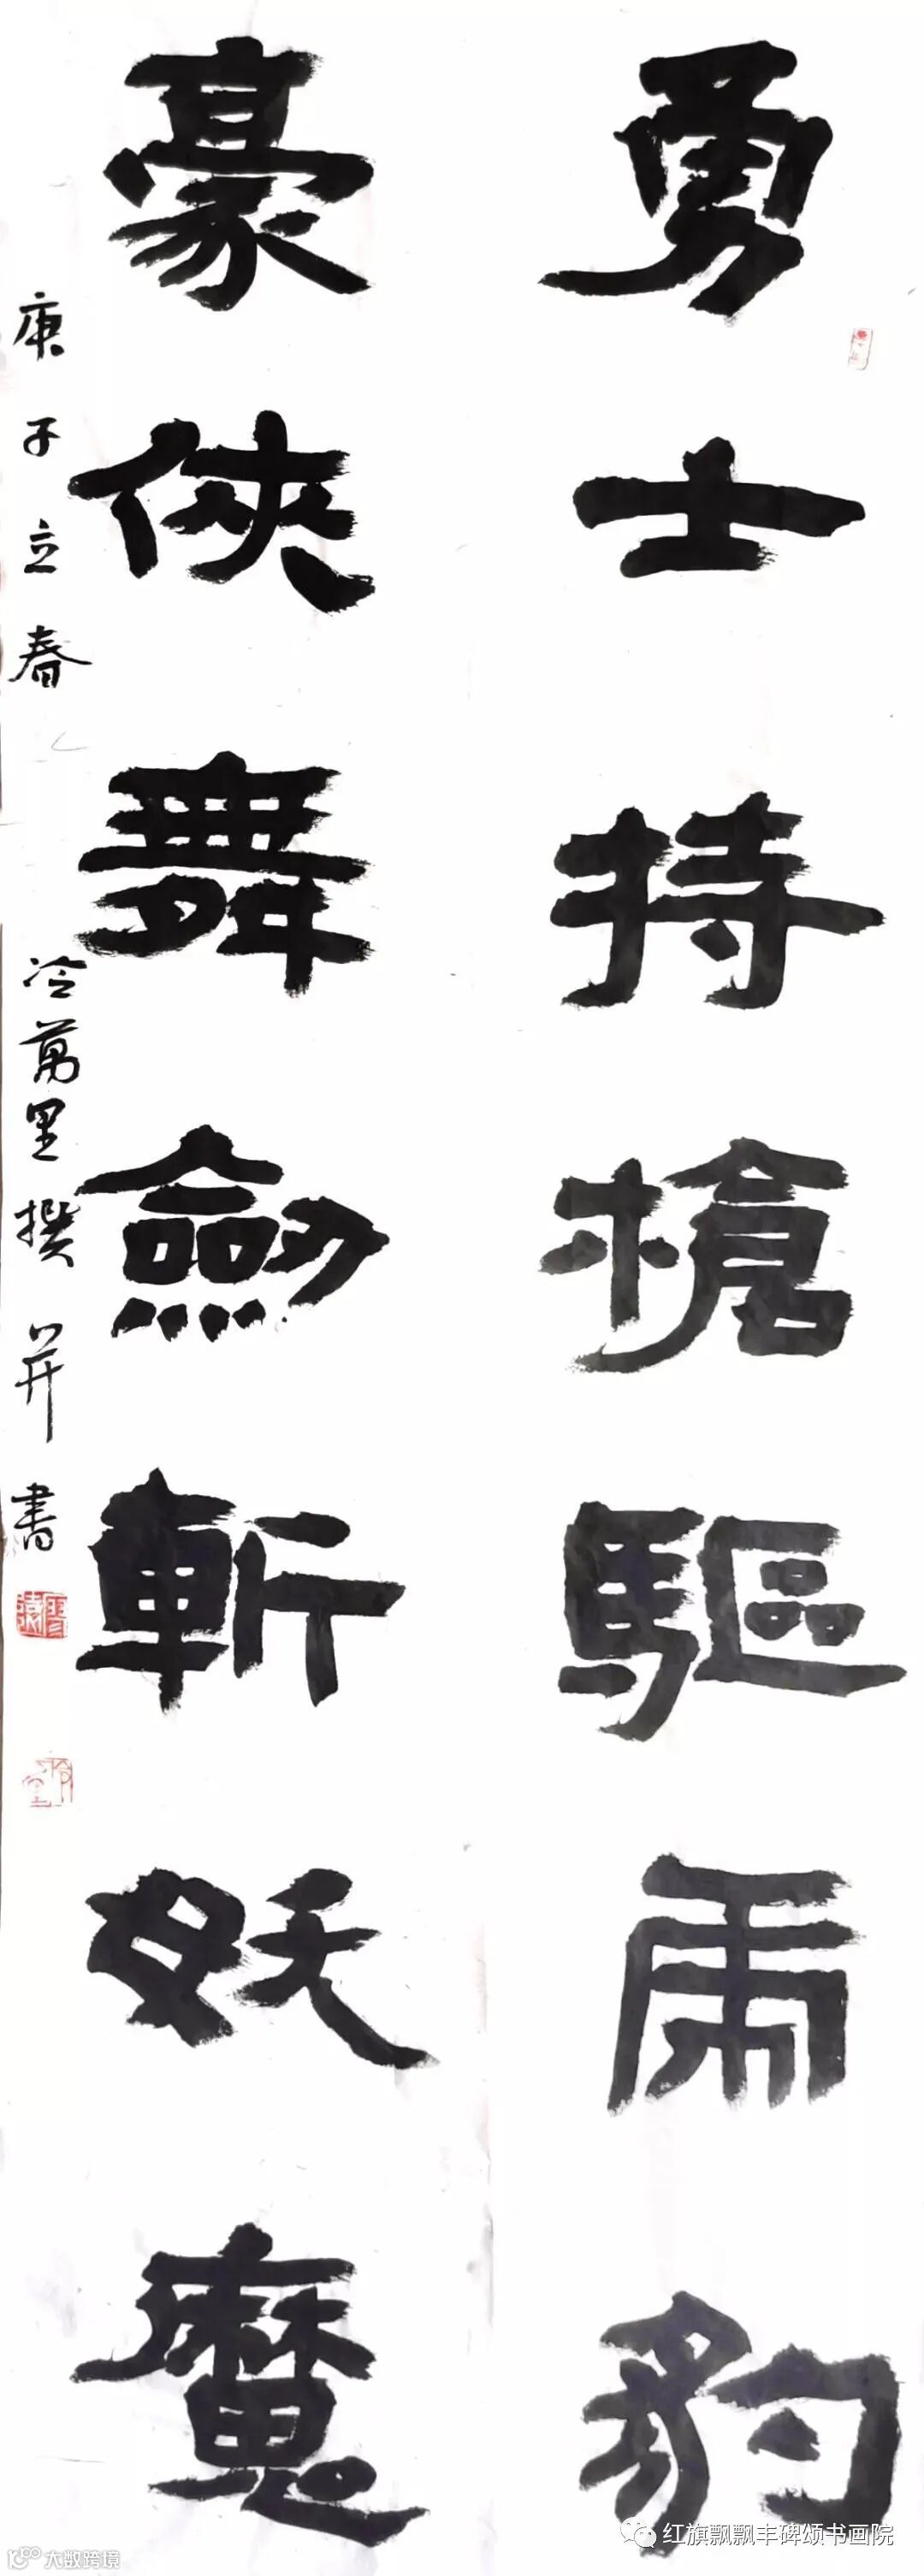 勇士持槍驅虎豹
豪俠舞劍斬妖魔
庚子立春
冷萬里撰并書
红旗飘飘丰碑颂书画院
大数跨境